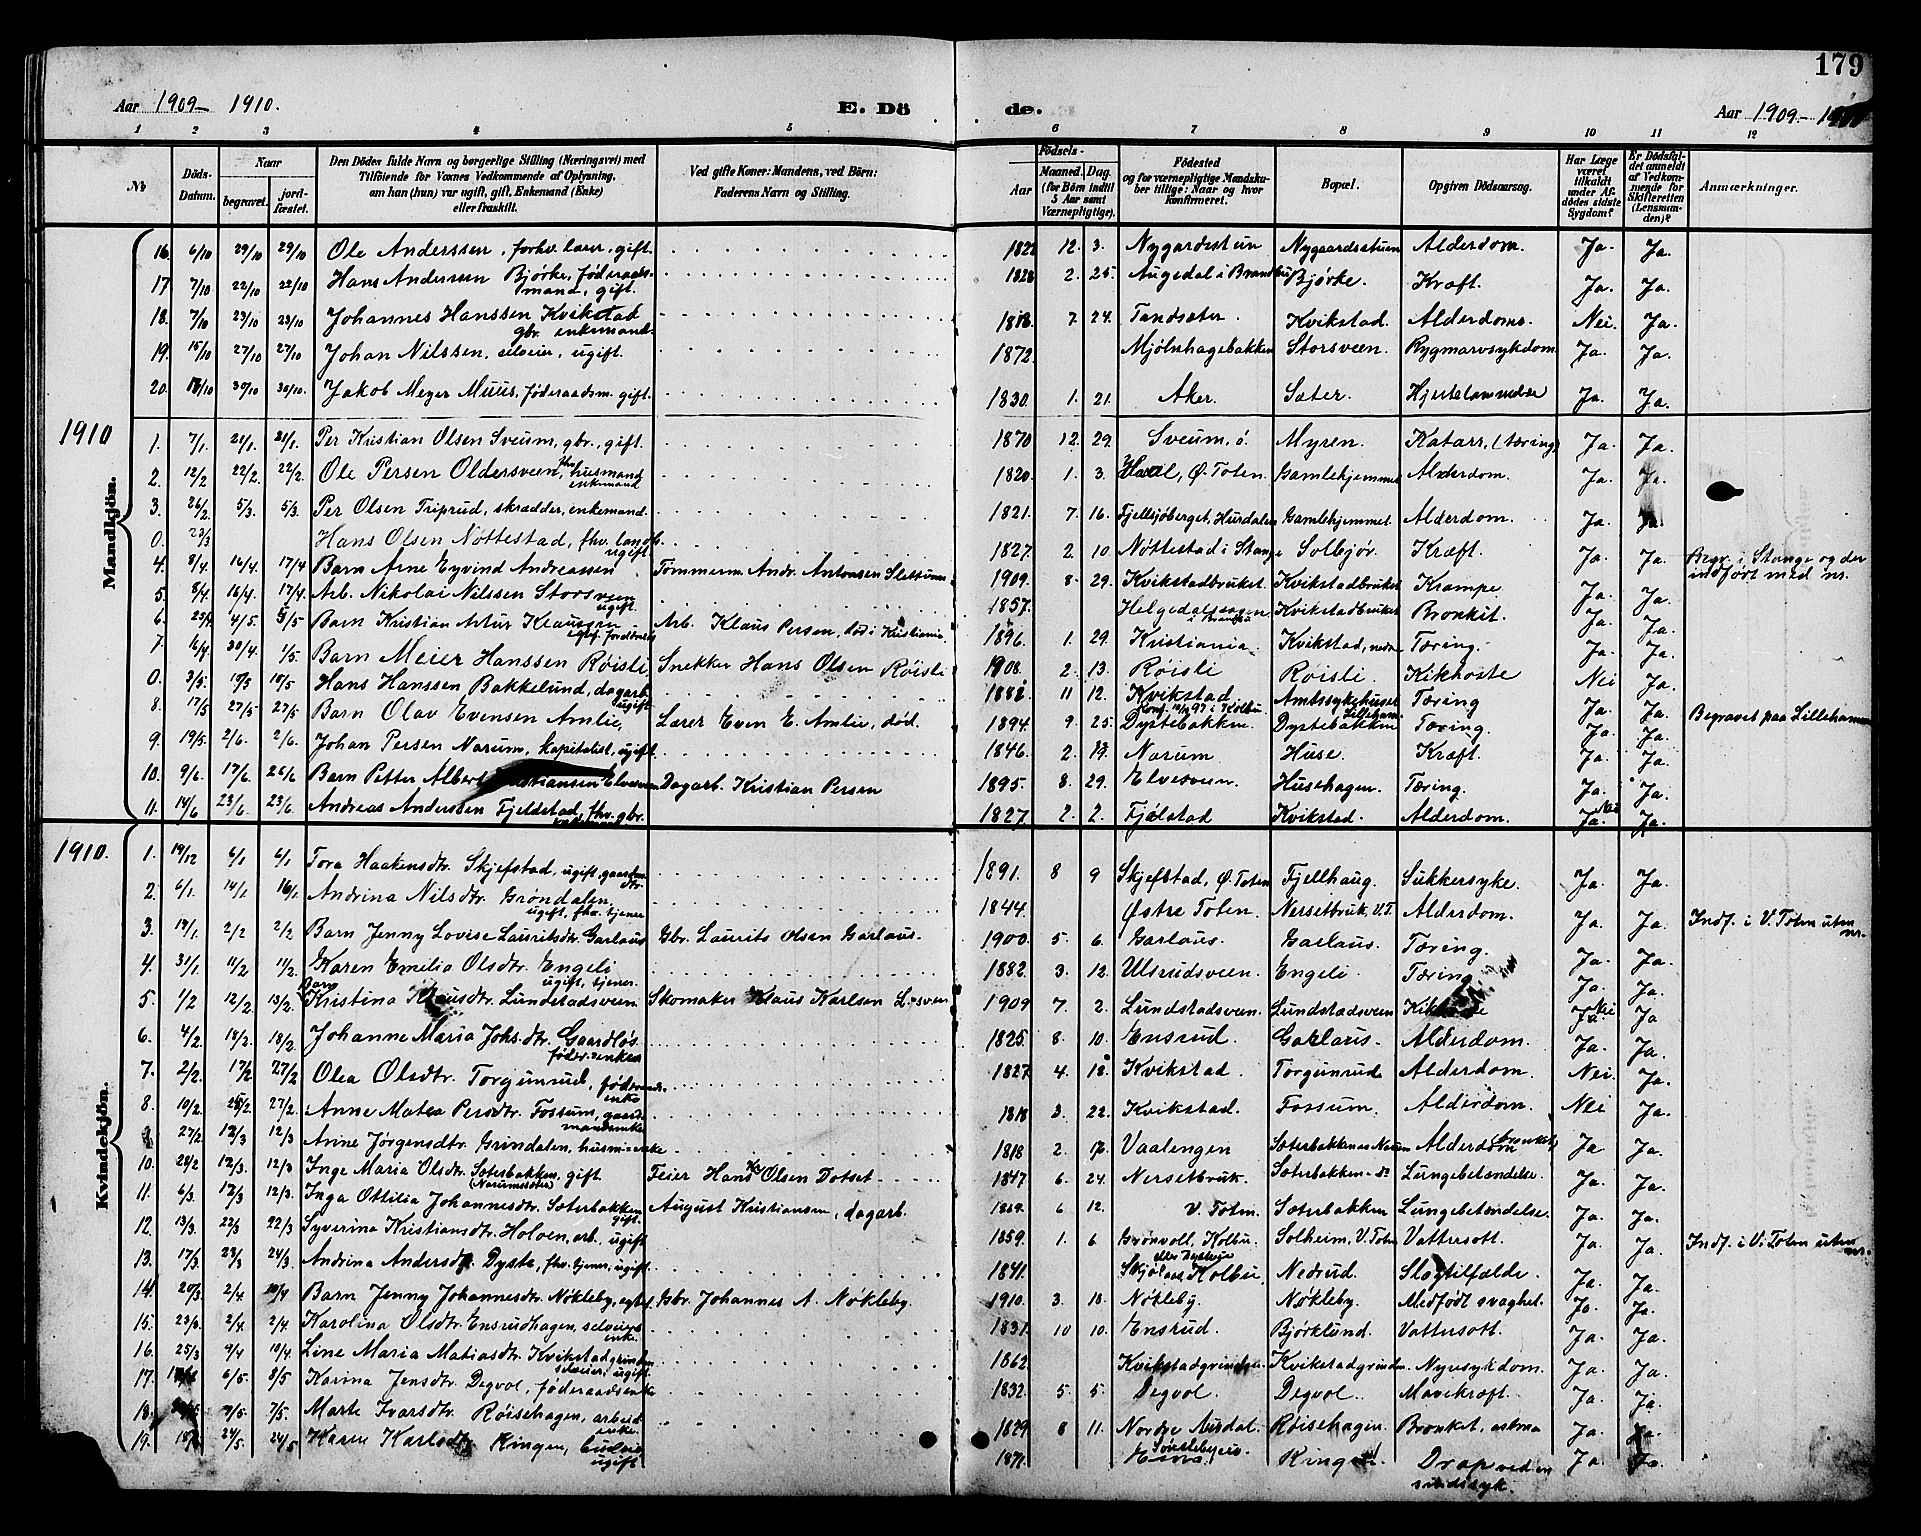 179
Aar 1909– 1910.
E. Döde.
Aar 1909.–
1 2 3 4 5 6 7 8 9 10 11 12
№
Döds-Datum.
Naar begravet. jordfæstet.
Den Dödes fulde Navn og borgerlige Stilling (Næringsvei) med Tilföiende for Voxnes Vedkommende af Oplysning, om han (hun) var ugift, gift, Enkemand (Enke) eller fraskilt.
Ved gifte Koner: Mandens, ved Börn: Faderens Navn og Stilling.
Födsels-
Aar Maaned. Dag. (for Börn indtil 5 Aar samt Værnepligtige).
Födested og for værnepligtige Mandskaber tillige: Naar og hvor konfirmeret.
Bopæl.
Opgiven Dödsaarsag.
Har Læge været tilkaldt under Afdödes sidste Sygdom?
Er Dödsfaldet anmeldt af Vedkommende for Skifteretten (Lensmanden)?
Anmærkninger.
Mandkjön.
16. 6/10 29/10 29/10 Ole Anderssen, forhv. lærer, gift. 1822 12. 3. Nygardsstun Nygaardsstuen Alderdom. Ja. Ja.
17 7/10 22/10 22/10 Hans Anderssen Bjørke, føderaadsmand, gift. 1828 2. 25. Augedal i Brandbu Bjørke. Kræft. Ja. Ja.
18. 7/10 23/10 23/10 Johannes Hanssen Kvikstad gbr. enkemand. 1818. 7. 24. Tandsæter Kvikstad. Alderdoms. Nei. Ja.
19. 15/10 27/10 27/10 Johan Nilssen, selveier, ugift. 1872. Mjølnhagebakken Storsveen. Rygmarvsykdom. Ja. Ja.
20. 18/10 30/10 30/10. Jakob Meyer Muus, føderaadsm. gift. 1830. 1. 21. Aker. Sæter. Hjertelammelse Ja. Ja.
1910
1. 7/1. 21/1. 21/1. Per Kristian Olsen Sveum, gbr., gift. 1870 12. 29. Sveum, ö. Myren. Katarr, (tæring) Ja. Ja.
2. 12/2 22/2. 22/2. Ole Persen Oldersveen, fhv. husmand enkemand 1820. 1. 3. Hval, Ø. Toten Gamlehjemmet Alderdom. Ja. Ja.
3. 26/2. 5/3. 5/3. Per Olsen Triprud, skrædder, enkemand. 1821. 7. 16. Fjellsjøberget, Hurdalen Gamlehjemmet. Alderdom. Ja. Ja.
0. 23/3 Hans Olsen Nøttestad, fhv. landb. ugift. 1827. 2. 10. Nøttestad i Stange Solbjør. Kræft. Ja. Ja. Begr. i Stange og der indført med nr.
4. 8/4. 16/4. 17/4 Barn Arne Eyvind Andreassen Tømmerm. Andr. Antonsen 1909. 8. 29. Kvikstadbruket. Kvikstadbruket Krampe Ja. Ja.
5. 8/4. 16/4. 17/4. Arb. Nikolai Nilssen Storsveen ugift. 1857. Helgedalseagen i Brandbu Kvikstadbruket Bronkit. Ja. Ja.
6. 4/5. 5/5 Barn Kristian Artur Klaussen Arb. Klaus Persen, død i Kristiania 1896. 1. 29. Kristiania. Kvikstad, nedre Tæring. Ja. Ja.
7. 16/4 30/4. 1/5. Barn Meier Hanssen Røisli Snekker Hans Olsen Røisli 1908. 2. 13. Røisli Røisli. Kikhoste Nei Ja.
0. 3/5. 10/5 10/5 Hans Hanssen Bakkelund, dagarb. ugift. 1882 11 12. Kvikstad. Konf. i Kolbu. Amtssykehuset Lilleham. Tæring Ja. Ja. Begravet paa Lillehammer
8. 17/5 27/5 27/5 Barn Olav Evensen Amlie, Lærer Even E. Amlie, død. 1894 9. 25. Dystebakken. Dystebakken Tæring. Ja. Ja.
9. 19/5. 2/6. 2/6. Johan Persen Narum, kapitalist, ugift. 1846. 2. 19. Narum Huse. Kræft. Ja. Ja.
10. 9/6 17/6 26/6 Barn Petter Albert Kristiansen Elvesveen Dagarb. Kristian Persen 1895. 8. 29. Elvesveen Husehagen. Tæring. Ja. Ja.
11. 14/6 23/6 23/6 Andreas Anderssen Fjeldstad, fhv. gbr. 1827 2. 2. Fjølstad Kvikstad. Alderdom. Nei Ja.
Kvindekjön.
1910.
1. 19/12 6/1 6/1 Tora Haakensdtr. Skjefstad, ugift, gaardm. dtr. 1891. 8 9 Skjefstad, Ø. Toten Fjellhaug. Sukkersyke. Ja. Ja.
2. 6/1. 14/1 16/1 Andrina Nilsdtr. Grøndalen, ugift, fhv. tjener 1844. Østre Toten. Nersetbruk, V.T. Alderdom. Ja. Ja. Indf. i V. Toten uten nr.
3. 19/1. 2/2 2/2 Barn Jenny Lovise Lauritsdtr. Garlaus Gbr. Laurits Olsen Garlaus. 1900. 5 6. Garlaus. Garlaus. Tæring. Ja. Ja.
4. 31/1. 11/2 11/2. Karen Emilia Olsdtr. Engeli ugift, tjener. 1882. 3. 12. Ulsrudsveen. Engeli. Tæring Ja. Ja.
5. 1/2 12/2. 13/2. Barn Kristina Klausdtr. Lundstadsveen Skomaker Klaus Karlsen L.sveen 1909 7. 2. Lundstadsveen. Lundstadsveen Kikhoste Nei Ja
6. 4/2 18/2. 18/2. Johanne Maria Johs.dtr. Gaardløs føder.enken 1825. 8. 10. Ensrud. Garlaus. Alderdom. Ja. Ja.
7. 2/2. 17/2 27/2 Olea Olsdtr. Torgunrud, føderaadsenke 1827. 4. 18. Kvikstad. Torgunrud Alderdom. Nei. Ja.
8. 10/2. 25/2. 27/2. Anne Matea Persdtr. Fossum, gaardmandsenke 1818 3. 22. Kvikstad. Fossum. Alderdom. Nei Ja.
27/2 12/3 12/3 Anne Jørgensdtr. Grindalen, husm.enke 1818 2. 16. Vaalengen Sæterbakken Alderdom (bronkit) Ja Ja.
10. 24/2 12/3. 12/3 Inge Maria Olsdtr. Sæterbakken, gift. Feier Hans Olsen Dotset 1847 6. 24. Nersetbruk. Sæterbakken Lungebetændelse. Ja. Ja.
11. 6/3. 12/3 12/3. Inga Ottilia Johannesdtr. Sæterbakken gift. August Kristiansen, dagarb. 1869. 6 12. V. Toten. Sæterbakken Lungebetændelse. Ja. Ja.
12. 13/3 22/3 22/3 Syverina Kristiansdtr. Holven, arb. ugift 1859. 1. 6 Grønvoll, Kolbu. Solheim, V. Toten Vattersott. Ja. Ja. Indf. i V. Toten uten nr.
13. 17/3 23/3 24/3. Andrina Andersdtr. Dyste, fhv. tjener, ugift. 1841. Skjøl Kolbu. Nedrud. Slagtilfælde. Ja. Ja.
14. 20/3 2/4 10/4 Barn Jenny Johannesdtr. Nøkleby, Gbr. Johannes A. Nøkleby. 1910. 3. 10. Nøkleby. Nøkleby. Medfødt svaghet. Ja. Ja.
15. 23/3. 2/4 2/4 Karolina Olsdtr. Ensrudhagen, selveierenke. 1831. 10 10. Ensrud. Bjørklund. Vattersott. Ja. Ja.
16. 25/3 9/4 10/4. Line Maria Matiasdtr. Kvikstadgrinden selveier, ugift. 1862. Kvikstadgrinden. Kvikstadgrinden. Nyresykdom. Ja. Ja.
17. 6/5 8/5 Karina Jensdtr. Degvol, føderaadsenke 1832. 5 5. Degvol. Degvol. Mavekræft. Ja. Ja.
18. 7/5. 7/5. Marte Ivarsdtr. Røisehagen, arbeid. enke. 1829 8 11. Nordre Aurdal. Røisehagen. Bronkit, astma Ja. Ja.
19. 24/5. 24/5 Karen Karlsdtr. Ringen, ugift 1871. Ringen Drap ved en sindssyk. Ja. Ja.